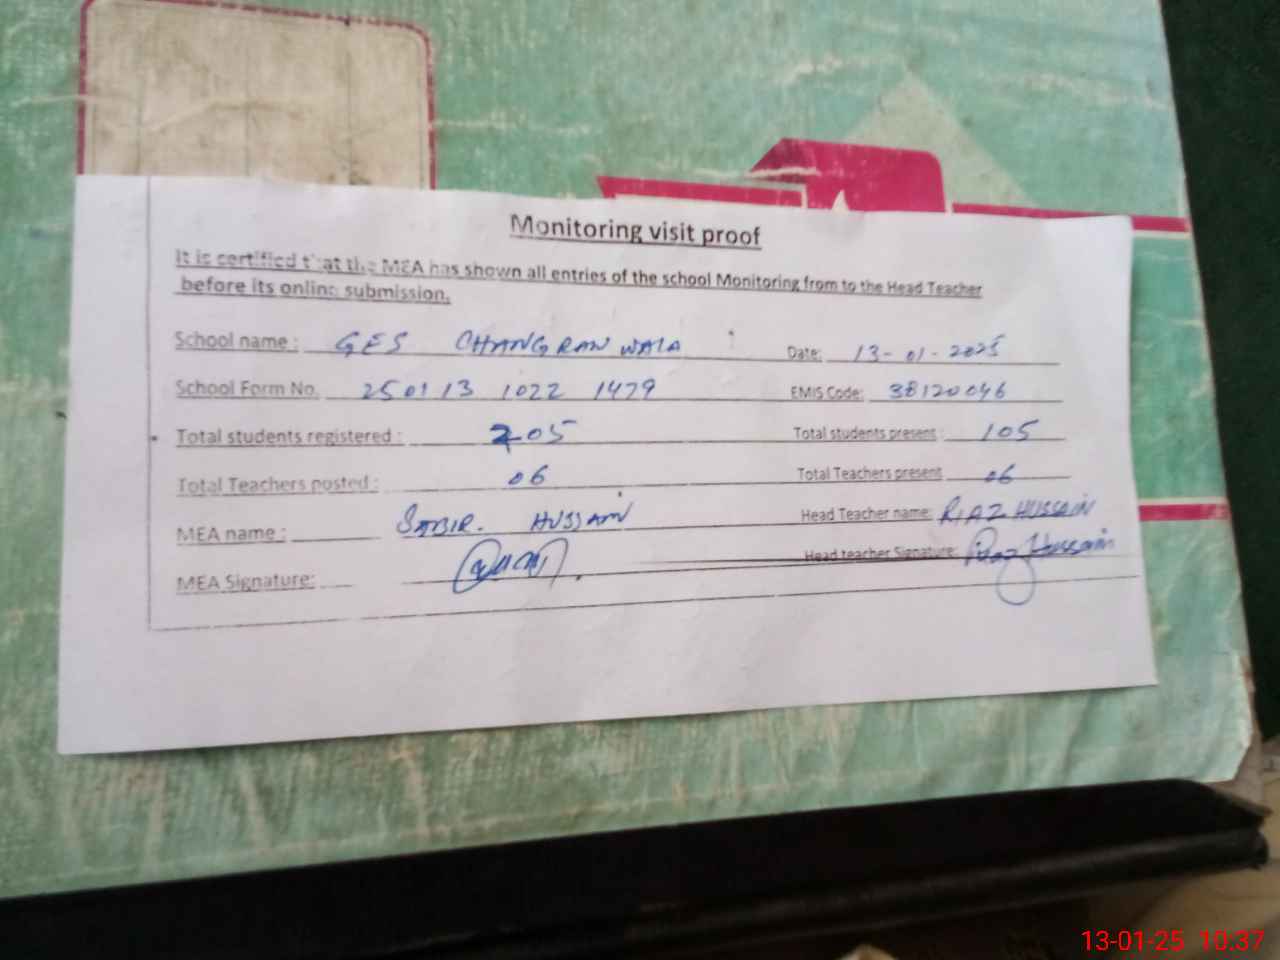 Monitoring visit proof
It is certified that the MEA has shown all entries of the school Monitoring from to the Head Teacher
before its online submission.
School name : GES CHANGRAN WALA Date: 13-01-2025
School Form No. 250113 1022 1479 EMIS Code: 38120046
Total students registered : 205 Total students present : 105
Total Teachers posted : 06 Total Teachers present 06
MEA name : SABIR. HUSSAIN Head Teacher name: RIAZ HUSSAIN
MEA Signature: Head teacher Signature: Riaz Hussain
13-01-25 10:37